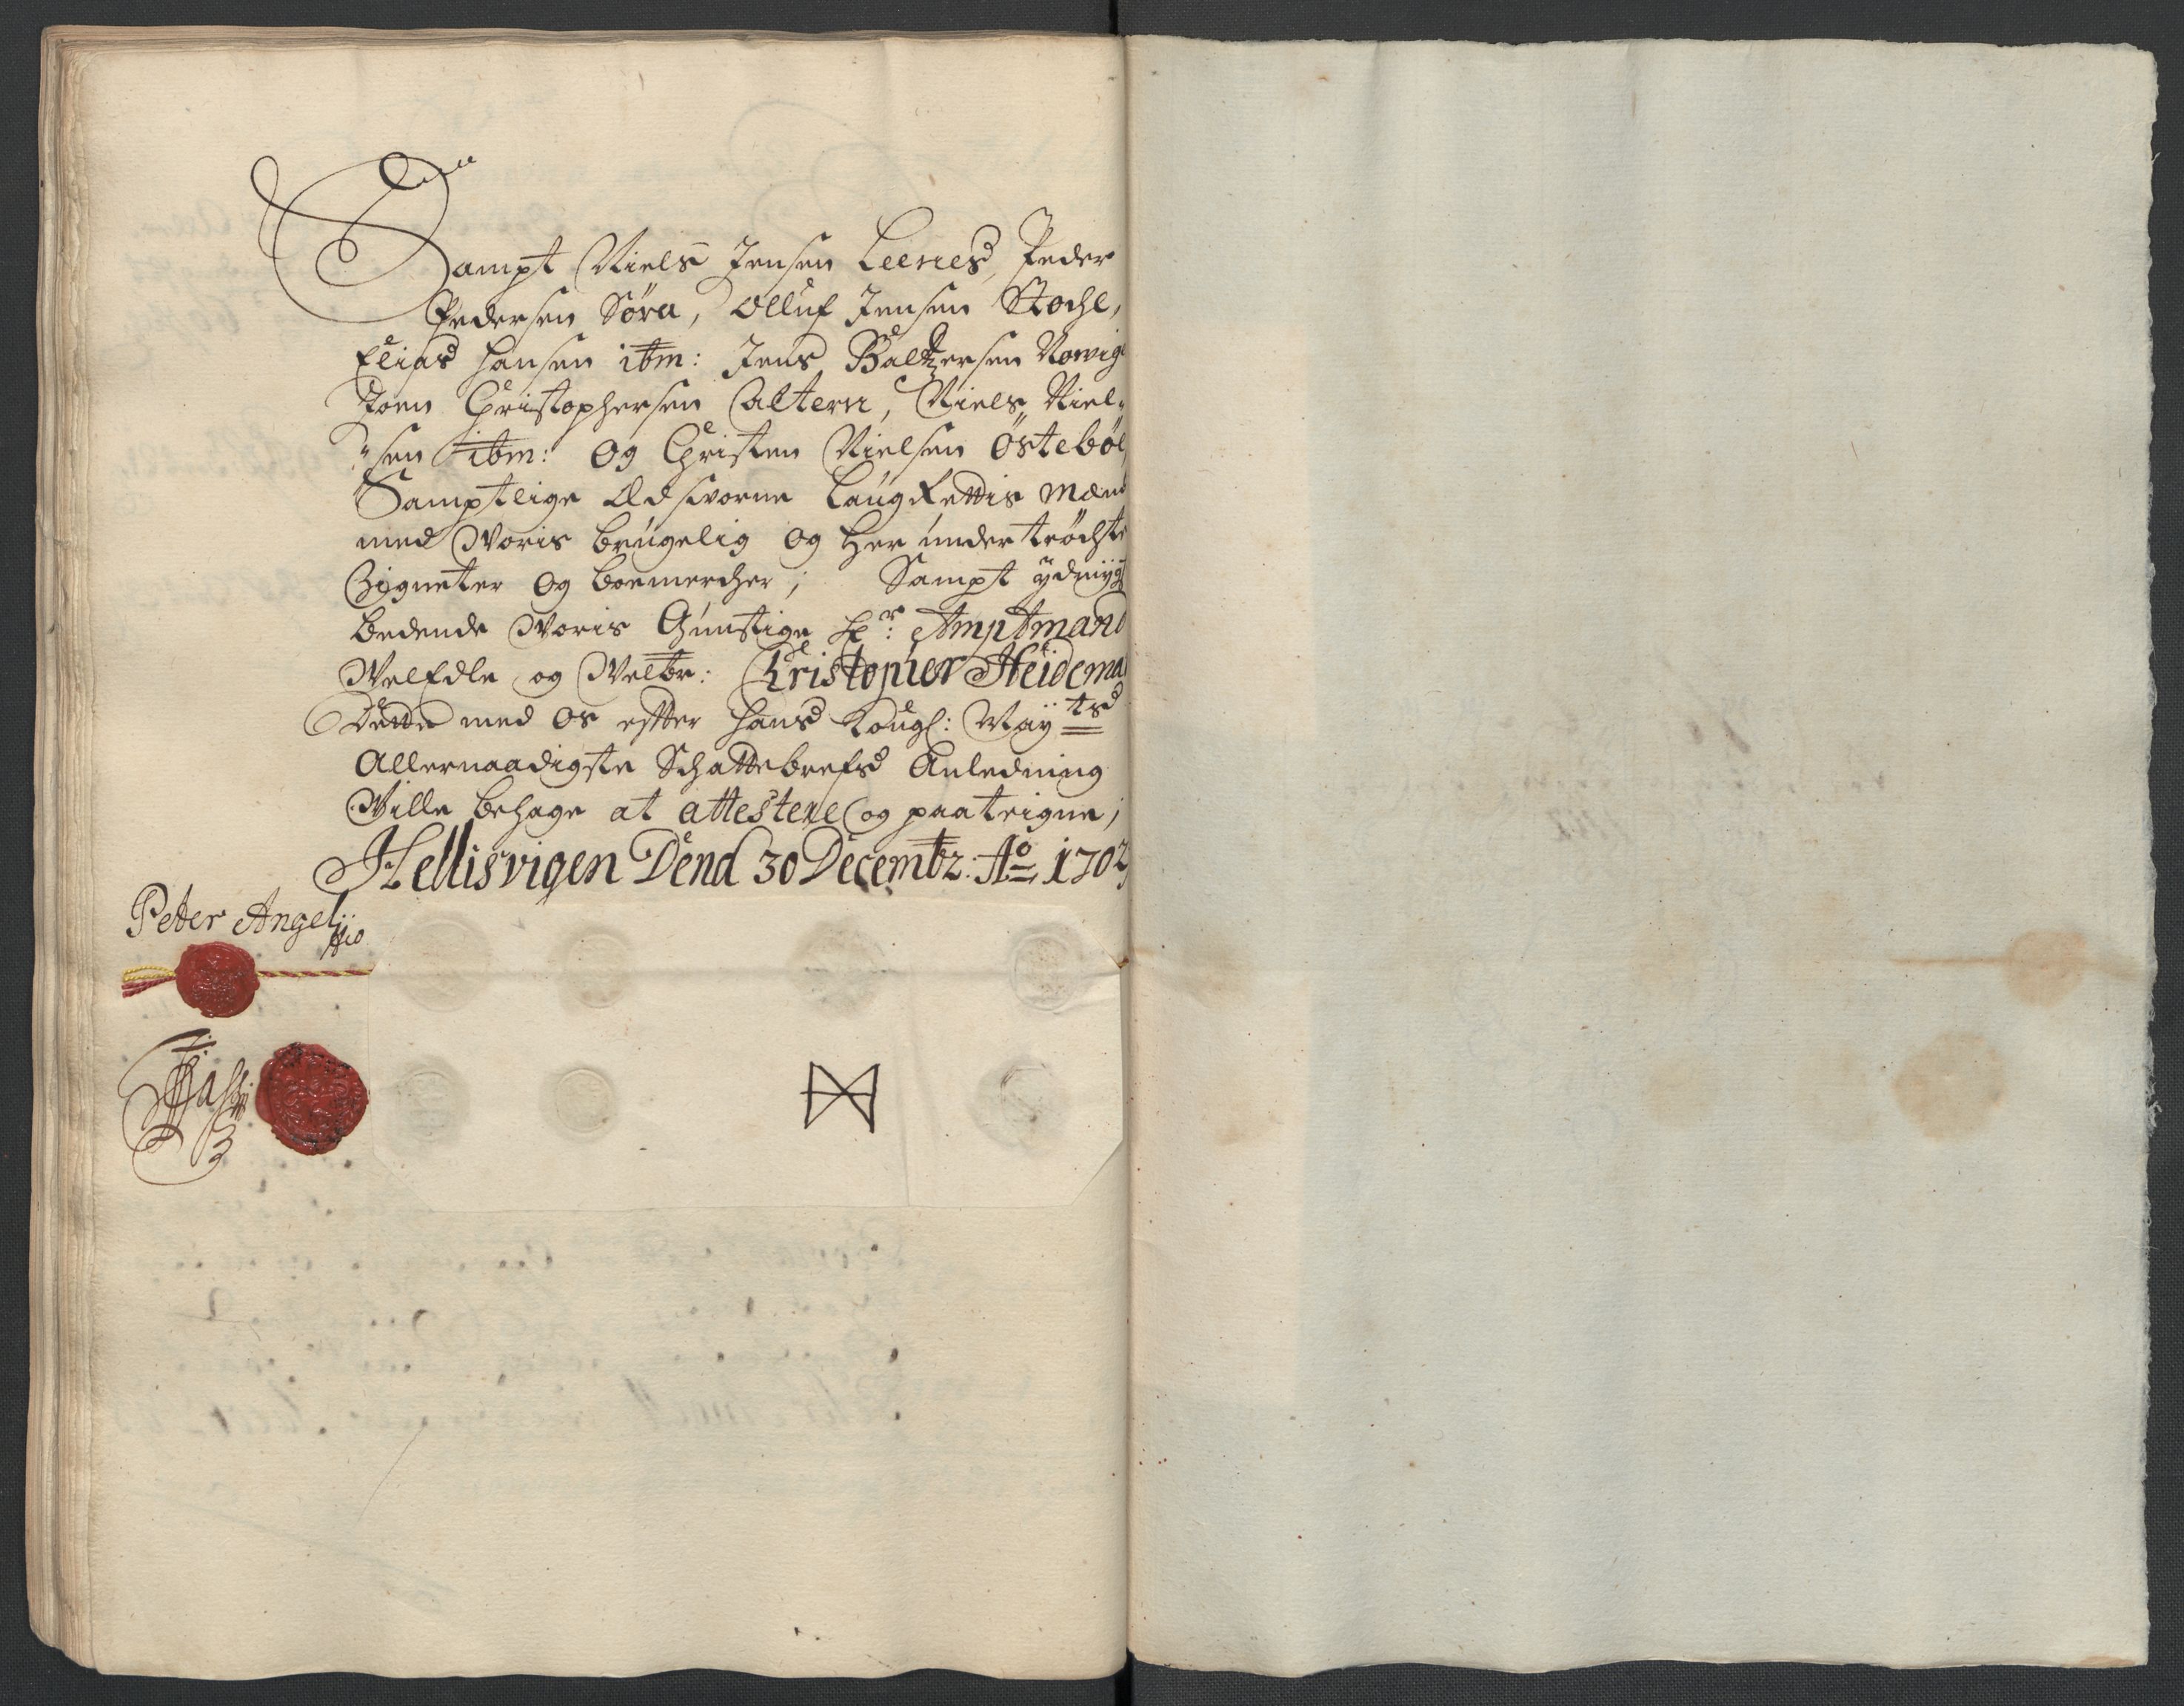 Sampt Niels Jensen Leenes, Peder
Pedersen Søra, Olluf Jensen Stochl,
Elias Hansen ibm: Jens Baltzersen Norvig
Joen Christophersen Altern, Niels Niel-
sen ibm: og Christen Nielsen Östebøl,
Samptlige Ædsvorne Laugrettis Mænd
med Woris brugelig og her under tröchte
Zigneter og boemercher; Sampt ydmygl
bedende Woris Gunstige Hr: Amptmand
WelEdle og Welbr: Christopher Heidema
Dette med os efter Hans Kongl: Mayts
Allernaadigste Schattebrefs Anledning
Wille behage at attestere og paateigne;
Hellisvigen Dend 30 Decembr: Ao 1702
Peter Angell